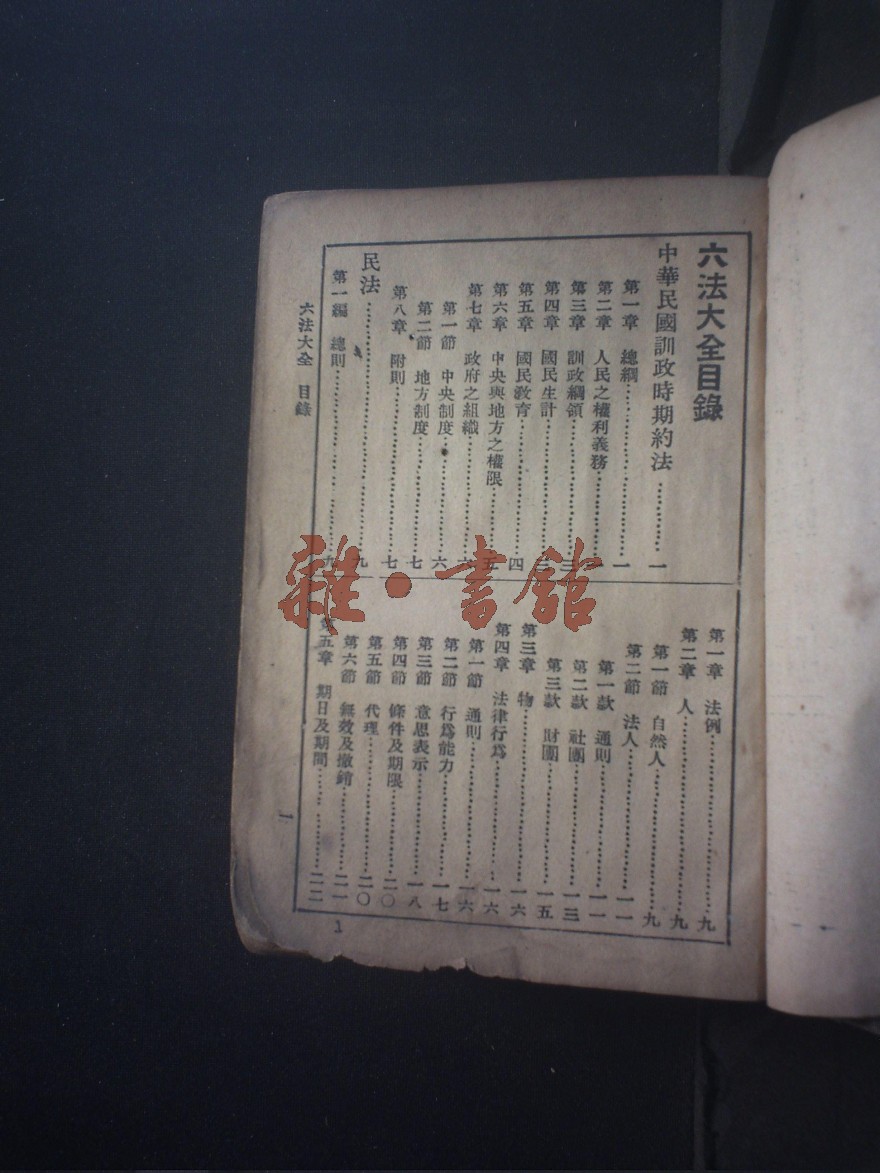 六法大全目錄
中華民國訓政時期約法…………一
第一章 總綱…………一
第二章 人民之權利義務…………一
第三章 訓政綱領…………三
第四章 國民生計…………三
第五章 國民教育…………四
第六章 中央與地方之權限…………五
第七章 政府之組織…………六
第一節 中央制度…………六
第二節 地方制度…………七
第八章 附則…………七
民法…………九
第一編 總則…………九
第一章 法例…………九
第二章 人…………九
第一節 自然人…………九
第二節 法人…………一一
第一款 通則…………一一
第二款 社團…………一三
第三款 財團…………一五
第三章 物…………一六
第四章 法律行爲…………一六
第一節 通則…………一六
第二節 行爲能力…………一七
第三節 意思表示…………一八
第四節 條件及期限…………二〇
第五節 代理…………二〇
第六節 無效及撤銷…………二一
第五章 期日及期間…………二二
六法大全 目錄
一
1
雜·書館